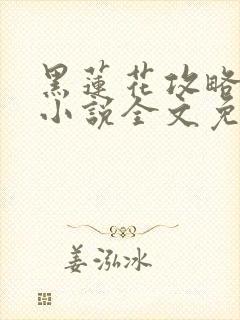 黑蓮花攻略
小說全文免
姜泓冰